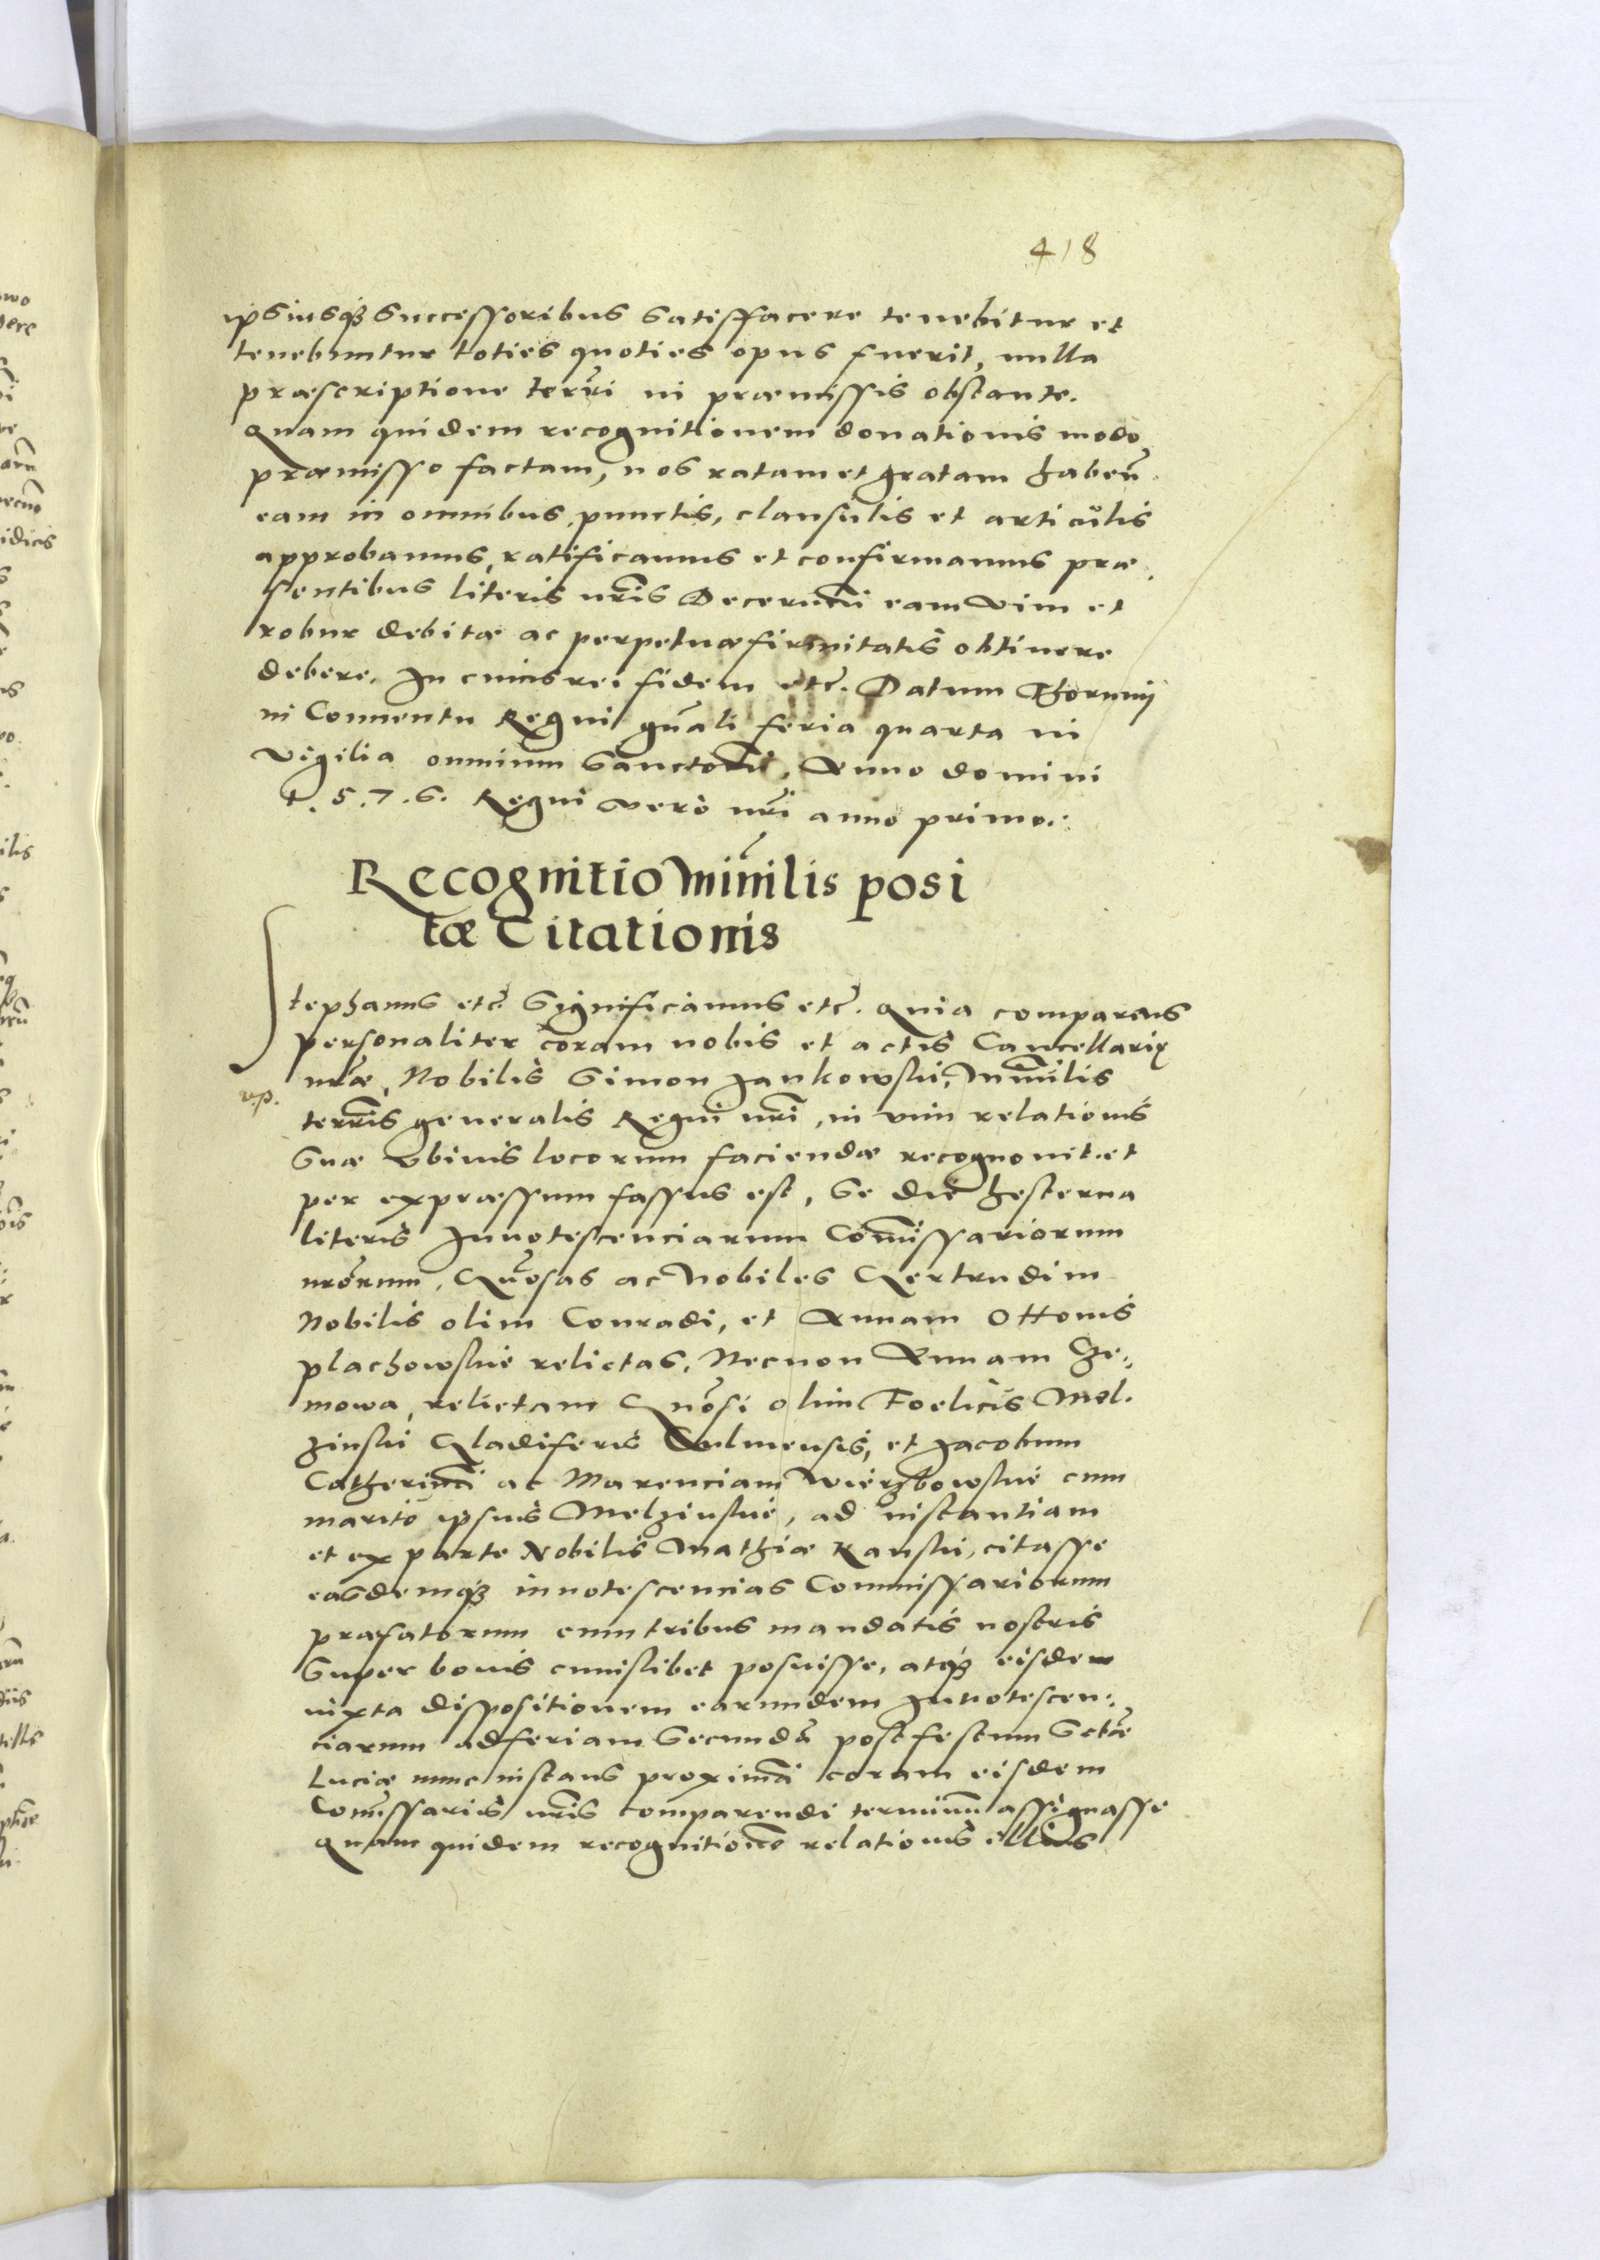 418
ipsiusq₃ successoribus satisffacere tenebitur et
tenebuntur toties quoties opus fuerit, nulla
præscriptione terrī in præmissis obstante.
Quam quidem recognitionem donationis modo
præmisso factam, nos ratam et gratam habeñ
eam in omnibus, punctis, clausulis et articulis
approbamus, ratificamus et confirmamus præ
sentibus literis nr̃is Decernẽn eam vim et
robur debitæ ac perpetuæ firmitatis obtinere
debere. In cuius rei fidem etc̃. Datum Thorunij
in Conuentu Regni gñali feria quarta in
vigilia omnium Sanctorũ, Anno domini
1.5.7.6. Regni verò nr̃i anno primo.
Recognitio Min̄rilis posi
tæ Citationis
Stephanus etc̃ Significamus etc̃. Quia comparens
personaliter coram nobis et actis Cancellariæ
v.p.
nr̃æ, Nobilis Simon Jankowski, Minr̃ilis
terrr̃is generalis Regni nr̃i, in vim relationis
suæ vbiuis locorum faciendæ recognouit et
per expræssum fassus est, se die hesterna
literis Innotescenciarum Com̃issariorum
nr̃orum, Gñosas ac Nobiles Gertrudim
Nobilis olim Conradi, et Annam Ottonis
Plachowskie relictas, Necnon Annam Ze-
mowa, relictam Gnõsi olim Foelicis Mel-
zinski Gladiferis Culmensis, et Jacobum
Catherinã ac Marenciam Wierzbowskie cum
marito ipsius Melzinskie, ad instantiam
et ex parte Nobilis Mathiæ Kanski, citasse
easdemq₃ innotescencias Commissariorum
præfatorum cum tribus mandatis nostris
super bonis cuiuslibet posuisse, atq₃ eisdem
iuxta dispositionem earundem Innotescen-
ciarum ad feriam secundã post festum Sctæ̃
Luciæ nunc instans proximã coram eisdem
Com̃issariis nr̃is comparendi terminũ assignasse
Quam quidem recognitionẽ relationis illius